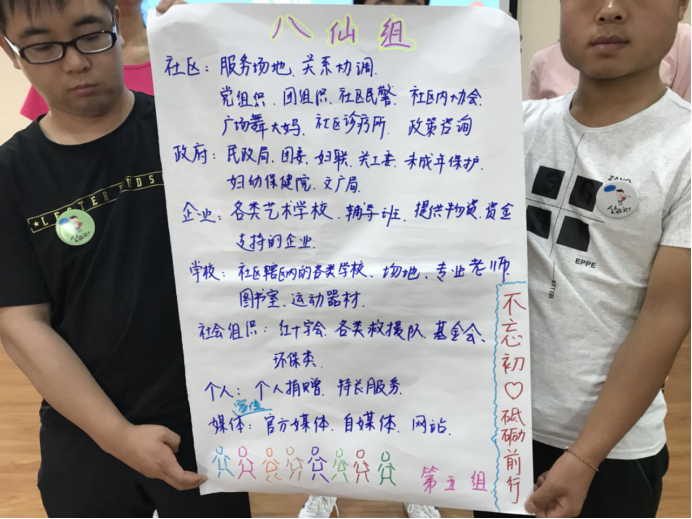 八仙组
社区：服务场地、关系协调.
党组织、团组织、社区民警、社区内协会
广场舞大妈、社区诊疗所、政策咨询
政府：民政局、团委、妇联、关工委、未成年保护
妇幼保健院、文广局.
企业：各类艺术学校、辅导班、提供物资、资金
支持的企业.
学校：社区辖区内的各类学校、场地、专业老师
图书室、运动器材.
社会组织：红十字会、各类救援队、基金会、
环保类.
个人：个人捐赠、特长服务.
宣传
媒体：官方媒体、自媒体、网站.
第五组
不忘初♡砥砺前行
EPPE